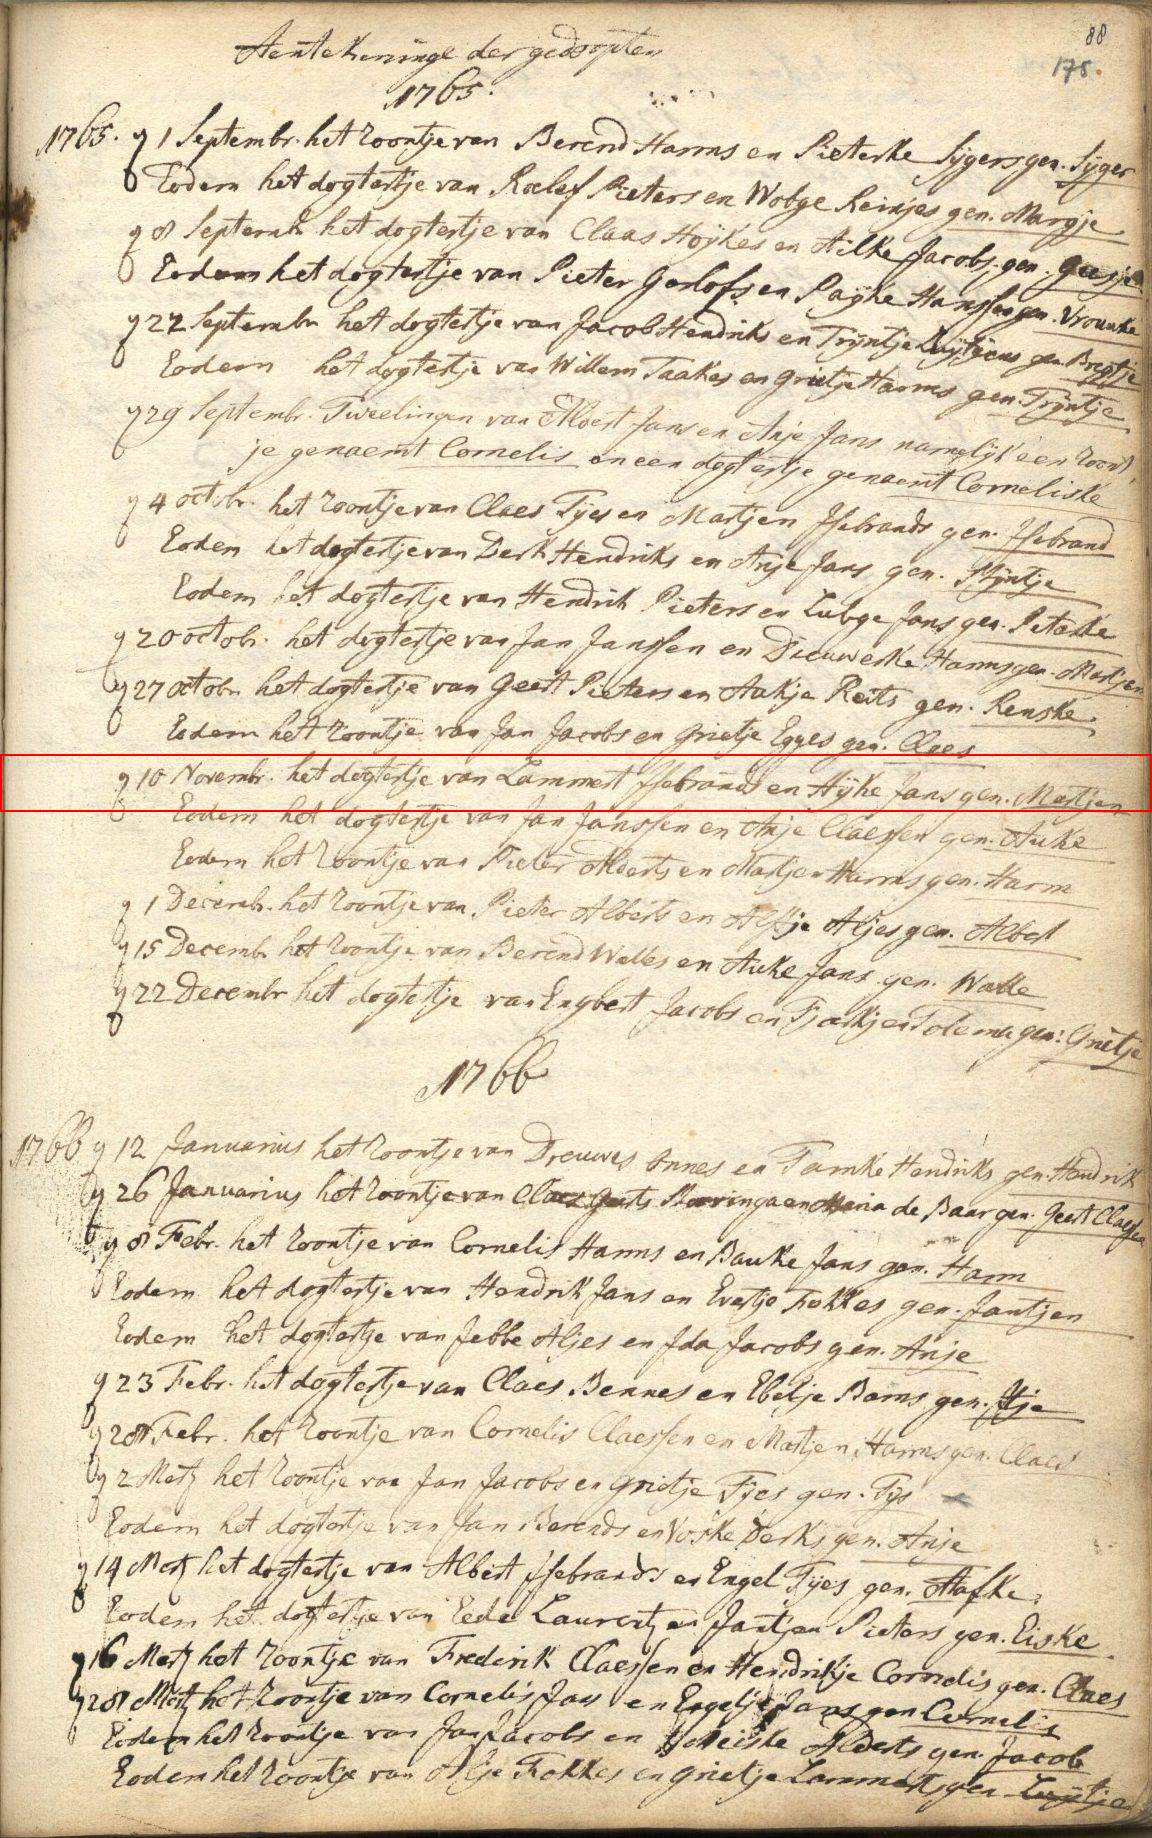 Aentekeninge der gedoopten
88
175.
1765.
1765. y 1 Septembr. het zoontje van Berend Harms en Pieterke Sÿgers gen. Sÿger
Eodem het dogtertje van Roelef Pieters en Wobge Reinjes gen. Margje
y 8 Septemb. het dogtertje van Claas Hoÿkes en Hilke Jacobs gen. Geesje
Eodem het dogtertje van Pieter Gerlofs en Paÿke Hanssen gen. Vrouwke
y 22 Septembr het dogtertje van Jacob Hendriks en Trÿntje gen. Bregtje
Eodem het dogtertje van Willem Taakes en Grietje Harms gen. Trÿntje
y 29 Septembr. Tweelingen van Albert Jans en Anje Jans namelijk een zoont
je genaemt Cornelis en een dogtertje genaemt Corneliske
y 4 octobr. het zoontje van Claes Tÿes en Martjen Jsebrands gen. Jsebrand
Eodem het dogtertje van Derk Hendriks en Anje Jans gen. Stÿntje
Eodem het dogtertje van Hendrik Pieters en Lubge Jans gen. Peterke
y 20 octobr. het dogtertje van Jan Janssen en Dieuwerke Harms gen. Martjen
y 27 octobr het dogtertje van Geert Pieters en Aukje Reits gen. Renske
Eodem het zoontje van Jan Jacobs en Grietje Egges gen. Claes
y 10 Novembr. het dogtertje van Lammert Jsebrands en Hÿke Jans gen. Martjen
Eodem het dogtertje van Jan Janssen en Anje Claessen gen. Auke
Eodem het zoontje van Pieter Alberts en Martjen Harms gen. Harm
y 1 Decemb. het zoontje van Pieter Alberts en Alje Aljes gen. Albert
y 15 Decembr het zoontje van Berend Walles en Auke Jans gen. Walle
y 22 Decembr het dogtertje van Engbert Jacobs en Tjarkjen Tolema gen: Grietje
1766
1766 y 12 Januarius het zoontje van Drewes Annes en Tamke Hendriks gen. Hendrik
y 26 Januarius het zoontje van Claes Geerts en Maria de Baar gen. Geert Claessen
y 8 Febr. het zoontje van Cornelis Harms en Bauke Jans gen. Harm
Eodem het dogtertje van Hendrik Jans en Evertje Fokkes gen. Jantjen
Eodem het dogtertje van Jebbe Aljes en Jda Jacobs gen. Anje
y 23 Febr. het dogtertje van Claes Bennes en Ebelje Barns gen. Itje
y 28 Febr. het zoontje van Cornelis Claessen en Martjen Harms gen. Claes
y 2 Mertz het zoontje van Jan Jacobs en Grietje Tÿes gen. Tÿs
Eodem het dogtertje van Jan Berends en Derks gen. Anje
y 14 Mertz het dogtertje van Albert Jsebrands en Engel Tÿes gen. Hafke
Eodem het dogtertje van Eede Laurentz en Jantjen Pieters gen. Eiske
y 16 Mertz het zoontje van Frederik Claessen en Hendrikje Cornelis gen. Claes
y 28 Mertz het zoontje van Cornelis Jans en Engeltje Jans gen Cornelis
Eodem het zoontje van Jan Jacobs en Meiske Alberts gen. Jacob
Eodem het zoontje van Alje Fokkes en Grietje Lammerts gen